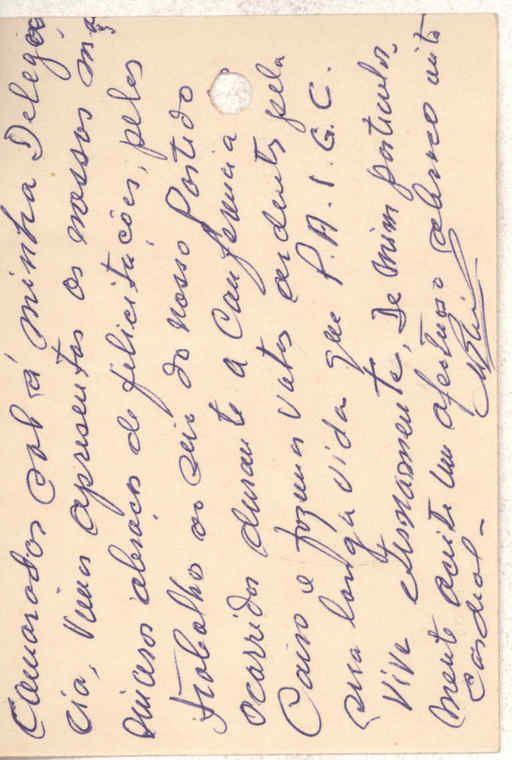 Camarados sob á minha Delegá
cia, vimos apresentar os nossos ma
sinceros abraços de felicitações, pelos
trabalho ao seio do nosso Partido
ocorridos durante a Conferencia
Cairo e fazemos votos ardentes pela
sua longa vida que P.A.I.G.C.
Vive eternamente. De mim particular
mento aceite um afectuoso abraco mto
Cordeal-